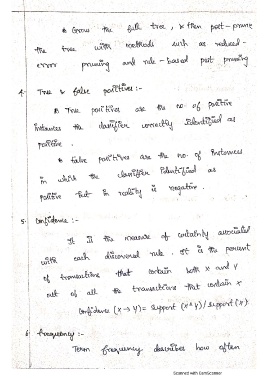 * Grow the full tree, & then post-prune
the tree with methods such as reduced-
error pruning and rule-based post pruning
4. True & false positives :-
* True positives are the no. of positive
instances the classifier correctly identified as
positive.
* false positives are the no. of instances
in which the classifier identified as
positive but in reality is negative.
5. Confidence :-
It is the measure of certainty associated
with each discovered rule. It is the percent
of transactions that contain both X and Y
out of all the transactions that contain X
Confidence (X → Y) = Support (X ^ Y) / Support (X)
6. frequency :-
Term frequency describes how often
Scanned with CamScanner